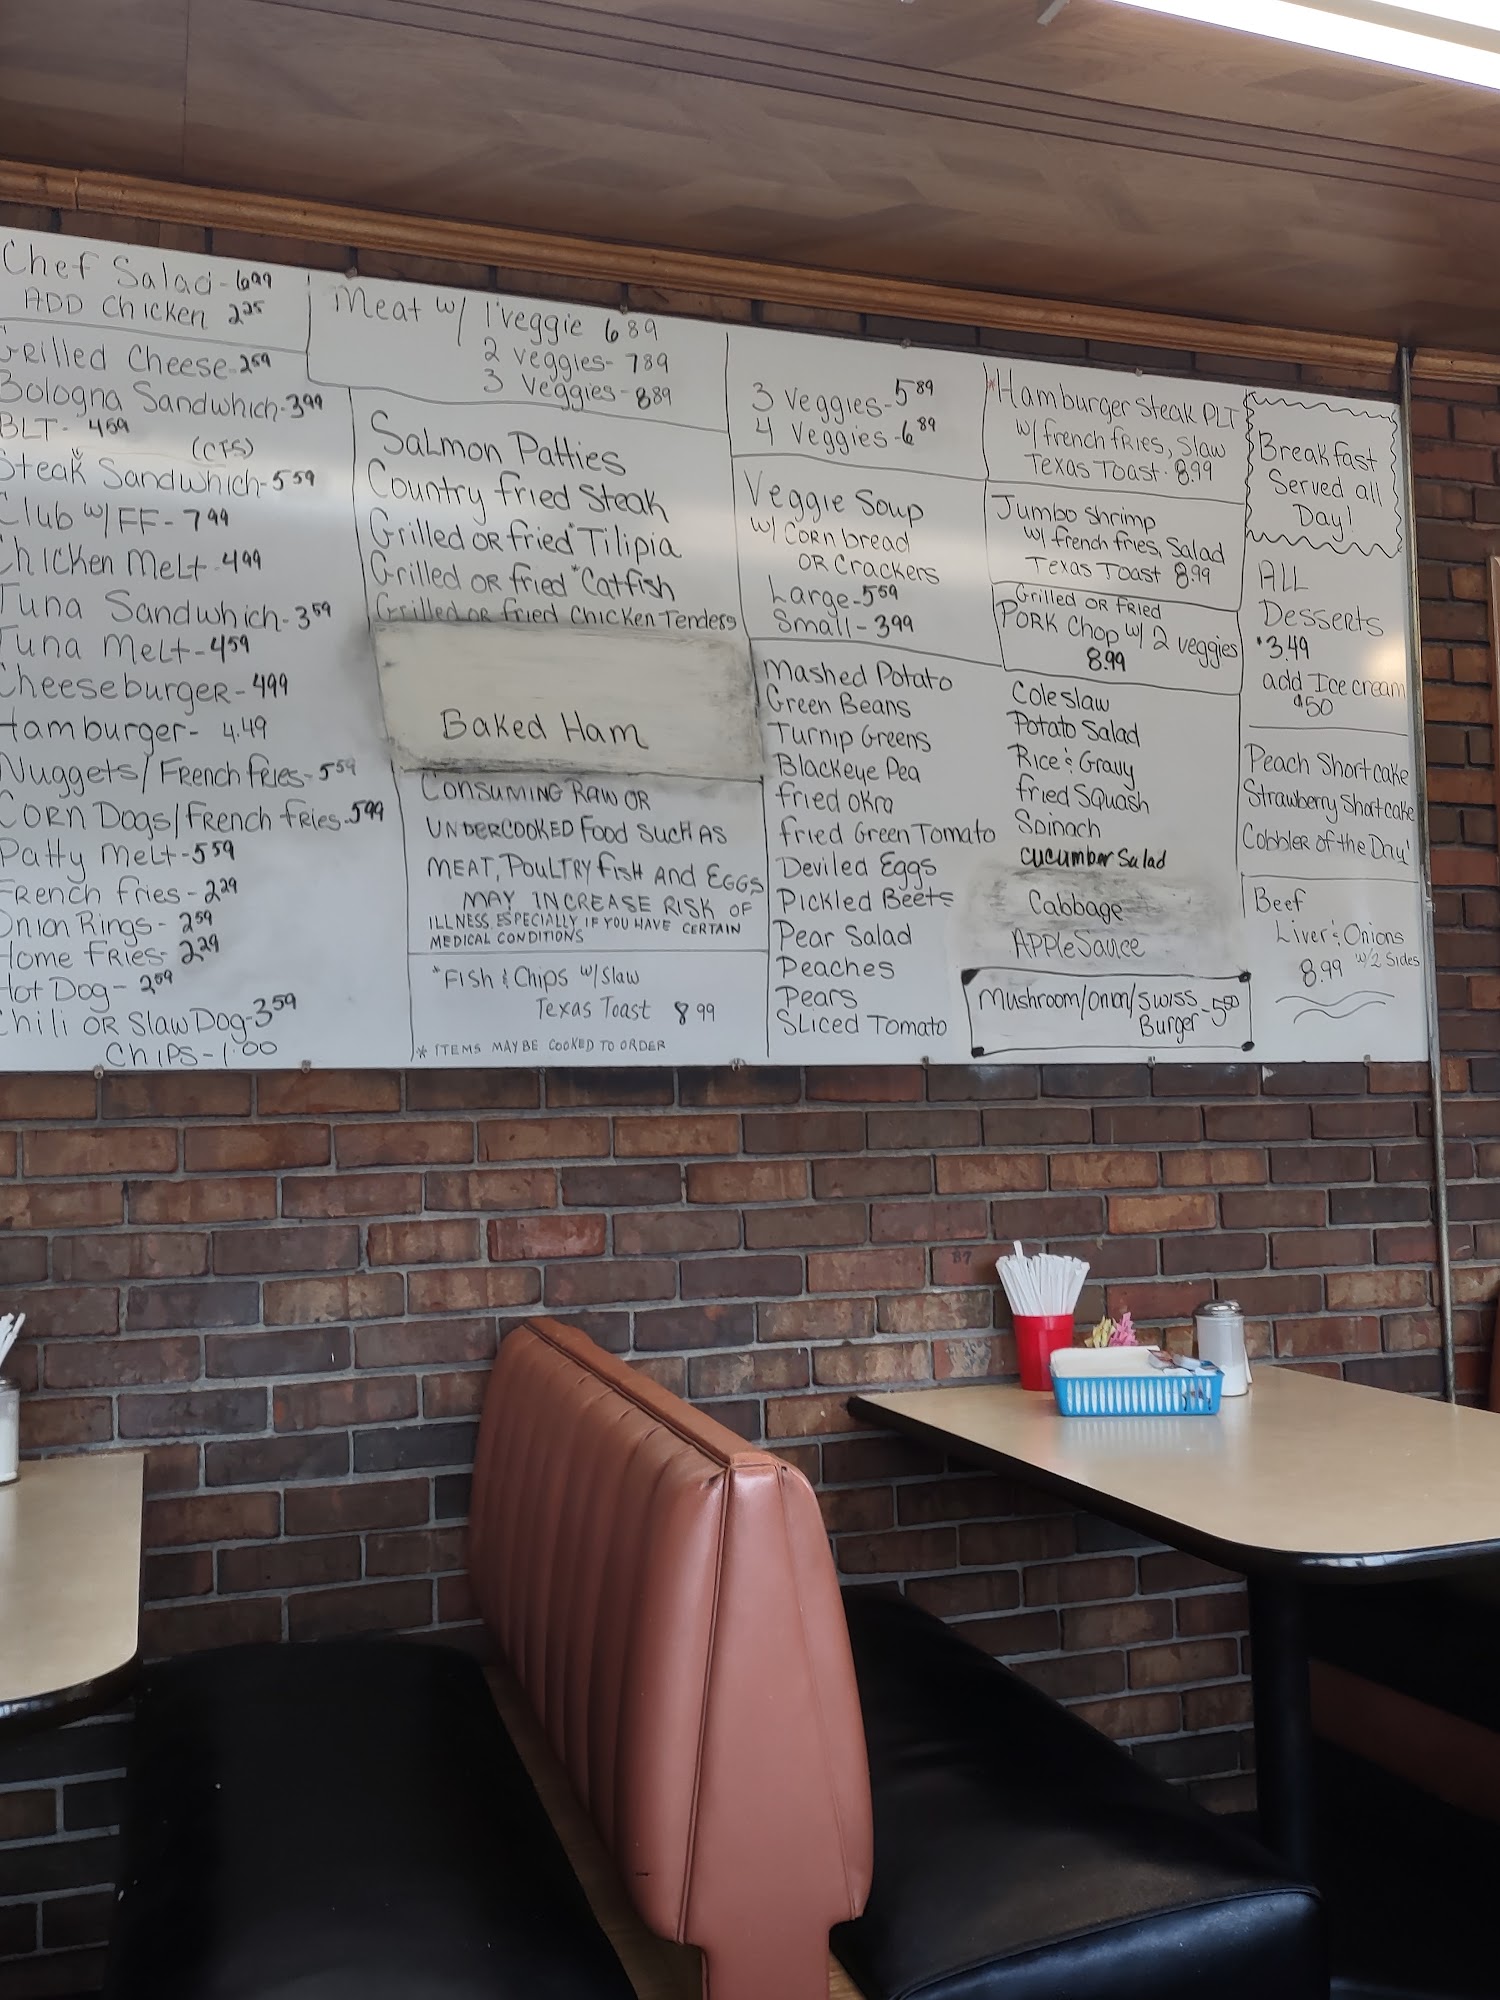 Chef Salad - 6.99
ADD Chicken 2.25
Grilled Cheese - 2.59
Bologna Sandwhich - 3.99
BLT - 4.59
(CTS)
Steak Sandwhich - 5.59
Club w/ FF - 7.99
Chicken Melt - 4.99
Tuna Sandwhich - 3.59
Tuna Melt - 4.59
Cheeseburger - 4.99
Hamburger - 4.49
Nuggets / French fries - 5.59
Corn Dogs / French fries - 5.99
Patty Melt - 5.59
French fries - 2.29
Onion Rings - 2.59
Home Fries - 2.29
Hot Dog - 2.59
Chili OR Slaw Dog - 3.59
Chips - 1.00
Meat w/ 1 veggie 6 89
2 veggies - 7 89
3 veggies - 8 89
Salmon Patties
Country fried Steak
Grilled OR fried *Tilipia
Grilled OR fried *Catfish
Grilled OR fried Chicken Tenders
Baked Ham
Consuming Raw OR
UNDERCOOKED Food Such As
MEAT, POULTRY fish AND EGGS
MAY INCREASE RISK OF
ILLNESS, ESPECIALLY IF YOU HAVE CERTAIN
MEDICAL CONDITIONS
*Fish & Chips w/ Slaw
Texas Toast 8 99
* ITEMS MAY BE COOKED TO ORDER
3 veggies - 5 89
4 veggies - 6 89
Veggie Soup
w/ Corn bread
OR Crackers
Large - 5 59
Small - 3 99
Mashed Potato
Green Beans
Turnip Greens
Blackeye Pea
fried okra
fried Green Tomato
Deviled Eggs
Pickled Beets
Pear Salad
Peaches
Pears
Sliced Tomato
*Hamburger Steak PLT
w/ french fries, Slaw
Texas Toast - 8.99
Jumbo Shrimp
w/ french fries, Salad
Texas Toast 8.99
Grilled OR Fried
Pork Chop w/ 2 veggies
8.99
Coleslaw
Potato Salad
Rice & Gravy
fried Squash
Spinach
cucumber Salad
Cabbage
AppleSauce
Mushroom/onion/swiss
Burger - 5 50
Breakfast
Served all
Day!
ALL
Desserts
$3.49
add Ice cream
$ 50
Peach Shortcake
Strawberry Shortcake
Cobbler of the Day
Beef
Liver & Onions
8.99 w/ 2 Sides